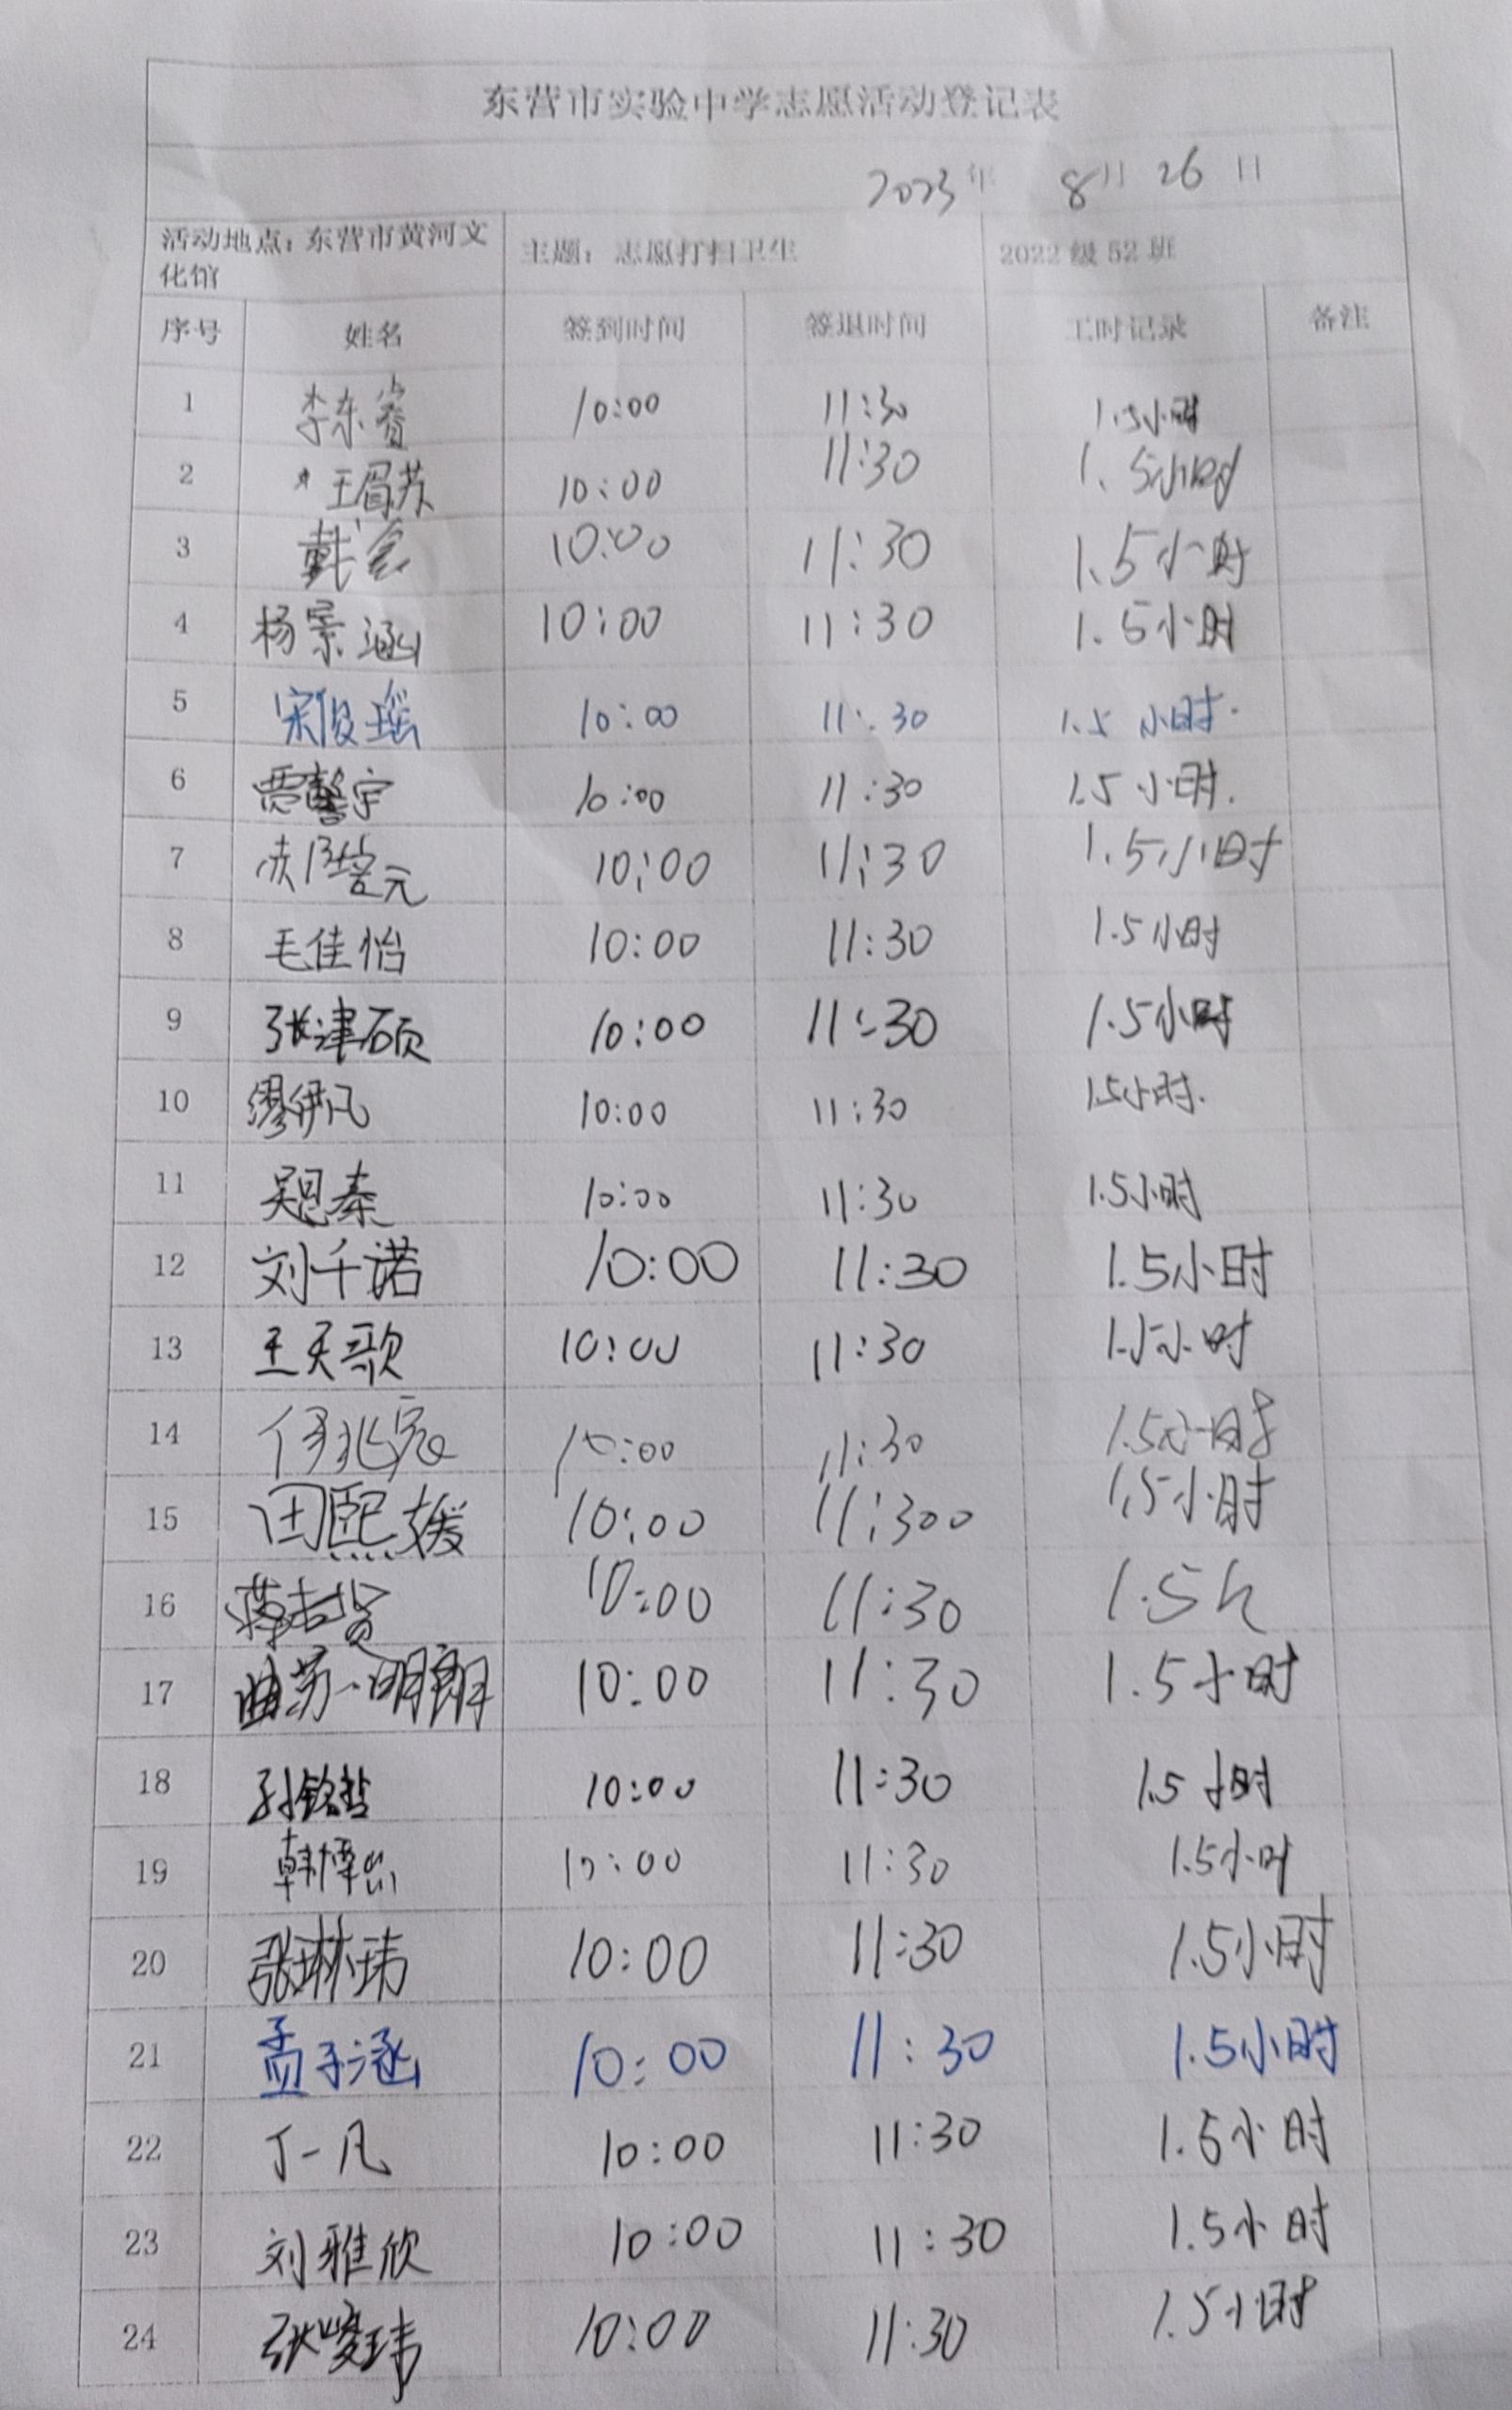 东营市实验中学志愿活动登记表
2023年 8月 26日
活动地点：东营市黄河文化馆 主题：志愿打扫卫生 2022级52班
序号 姓名 签到时间 签退时间 工时记录 备注
1 李东 10:00 11:30 1.5小时
2 王眉苏 10:00 11:30 1.5小时
3 戴 10:00 11:30 1.5小时
4 杨景涵 10:00 11:30 1.5小时
5 宋俊瑶 10:00 11:30 1.5小时.
6 贾馨宇 10:00 11:30 1.5小时.
7 元 10:00 11:30 1.5小时
8 毛佳怡 10:00 11:30 1.5小时
9 张津硕 10:00 11:30 1.5小时
10 缪伊凡 10:00 11:30 1.5小时.
11 吴思秦 10:00 11:30 1.5小时
12 刘千诺 10:00 11:30 1.5小时
13 王天歌 10:00 11:30 1.5小时
14 兆宸 10:00 11:30 1.5小时
15 田熙媛 10:00 11:300 1.5小时
16 蒋 10:00 11:30 1.5h
17 曲苏·明朗 10:00 11:30 1.5小时
18 孙铭哲 10:00 11:30 1.5小时
19 韩 10:00 11:30 1.5小时
20 张琳玮 10:00 11:30 1.5小时
21 孟子涵 10:00 11:30 1.5小时
22 丁一凡 10:00 11:30 1.5小时
23 刘雅欣 10:00 11:30 1.5小时
24 张峻玮 10:00 11:30 1.5小时